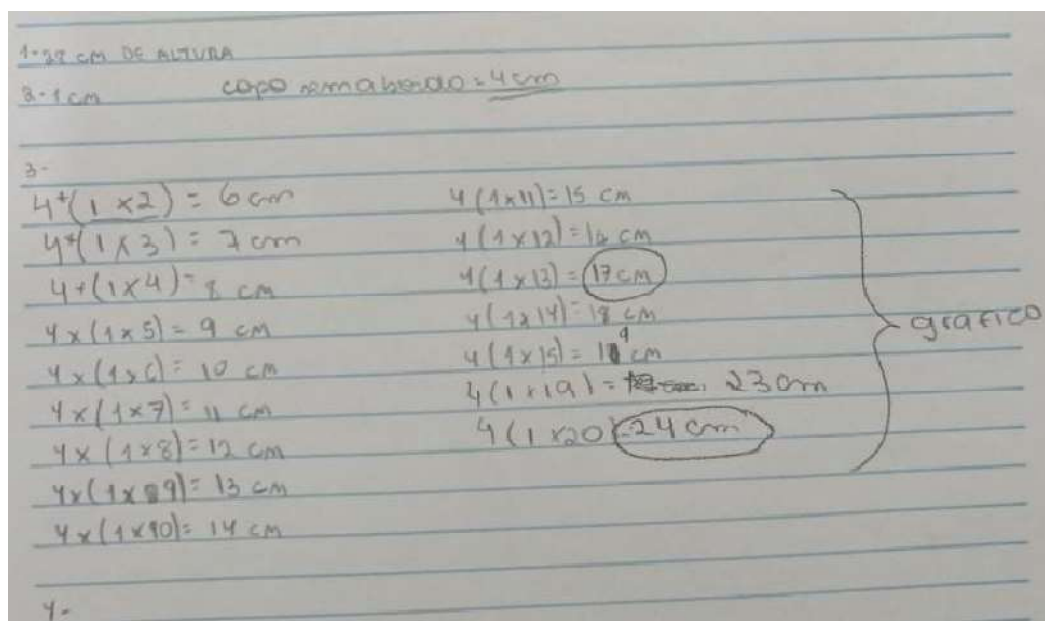 DE ALTURA
2- 1 cm
copo sem a borda = 4 cm
3-
4+(1 x2) = 6 cm
4+(1 x 3) = 7 cm
4+(1x4)= 8 cm
4x(1x5) = 9 cm
4x(1x6)= 10 cm
4x(1x7)= 11 cm
4x (1x8)=12 cm
4x(1x9)= 13 cm
4x(1x10)= 14 cm
4 (1x11)= 15 cm
4 (1x12)= 16 cm
4(1x13) = 17 cm
4(1x14)= 18 cm
4(1x15)= 19 cm
4(1x19) = 23 cm
4(1 x20)=24 cm
grafico
4-